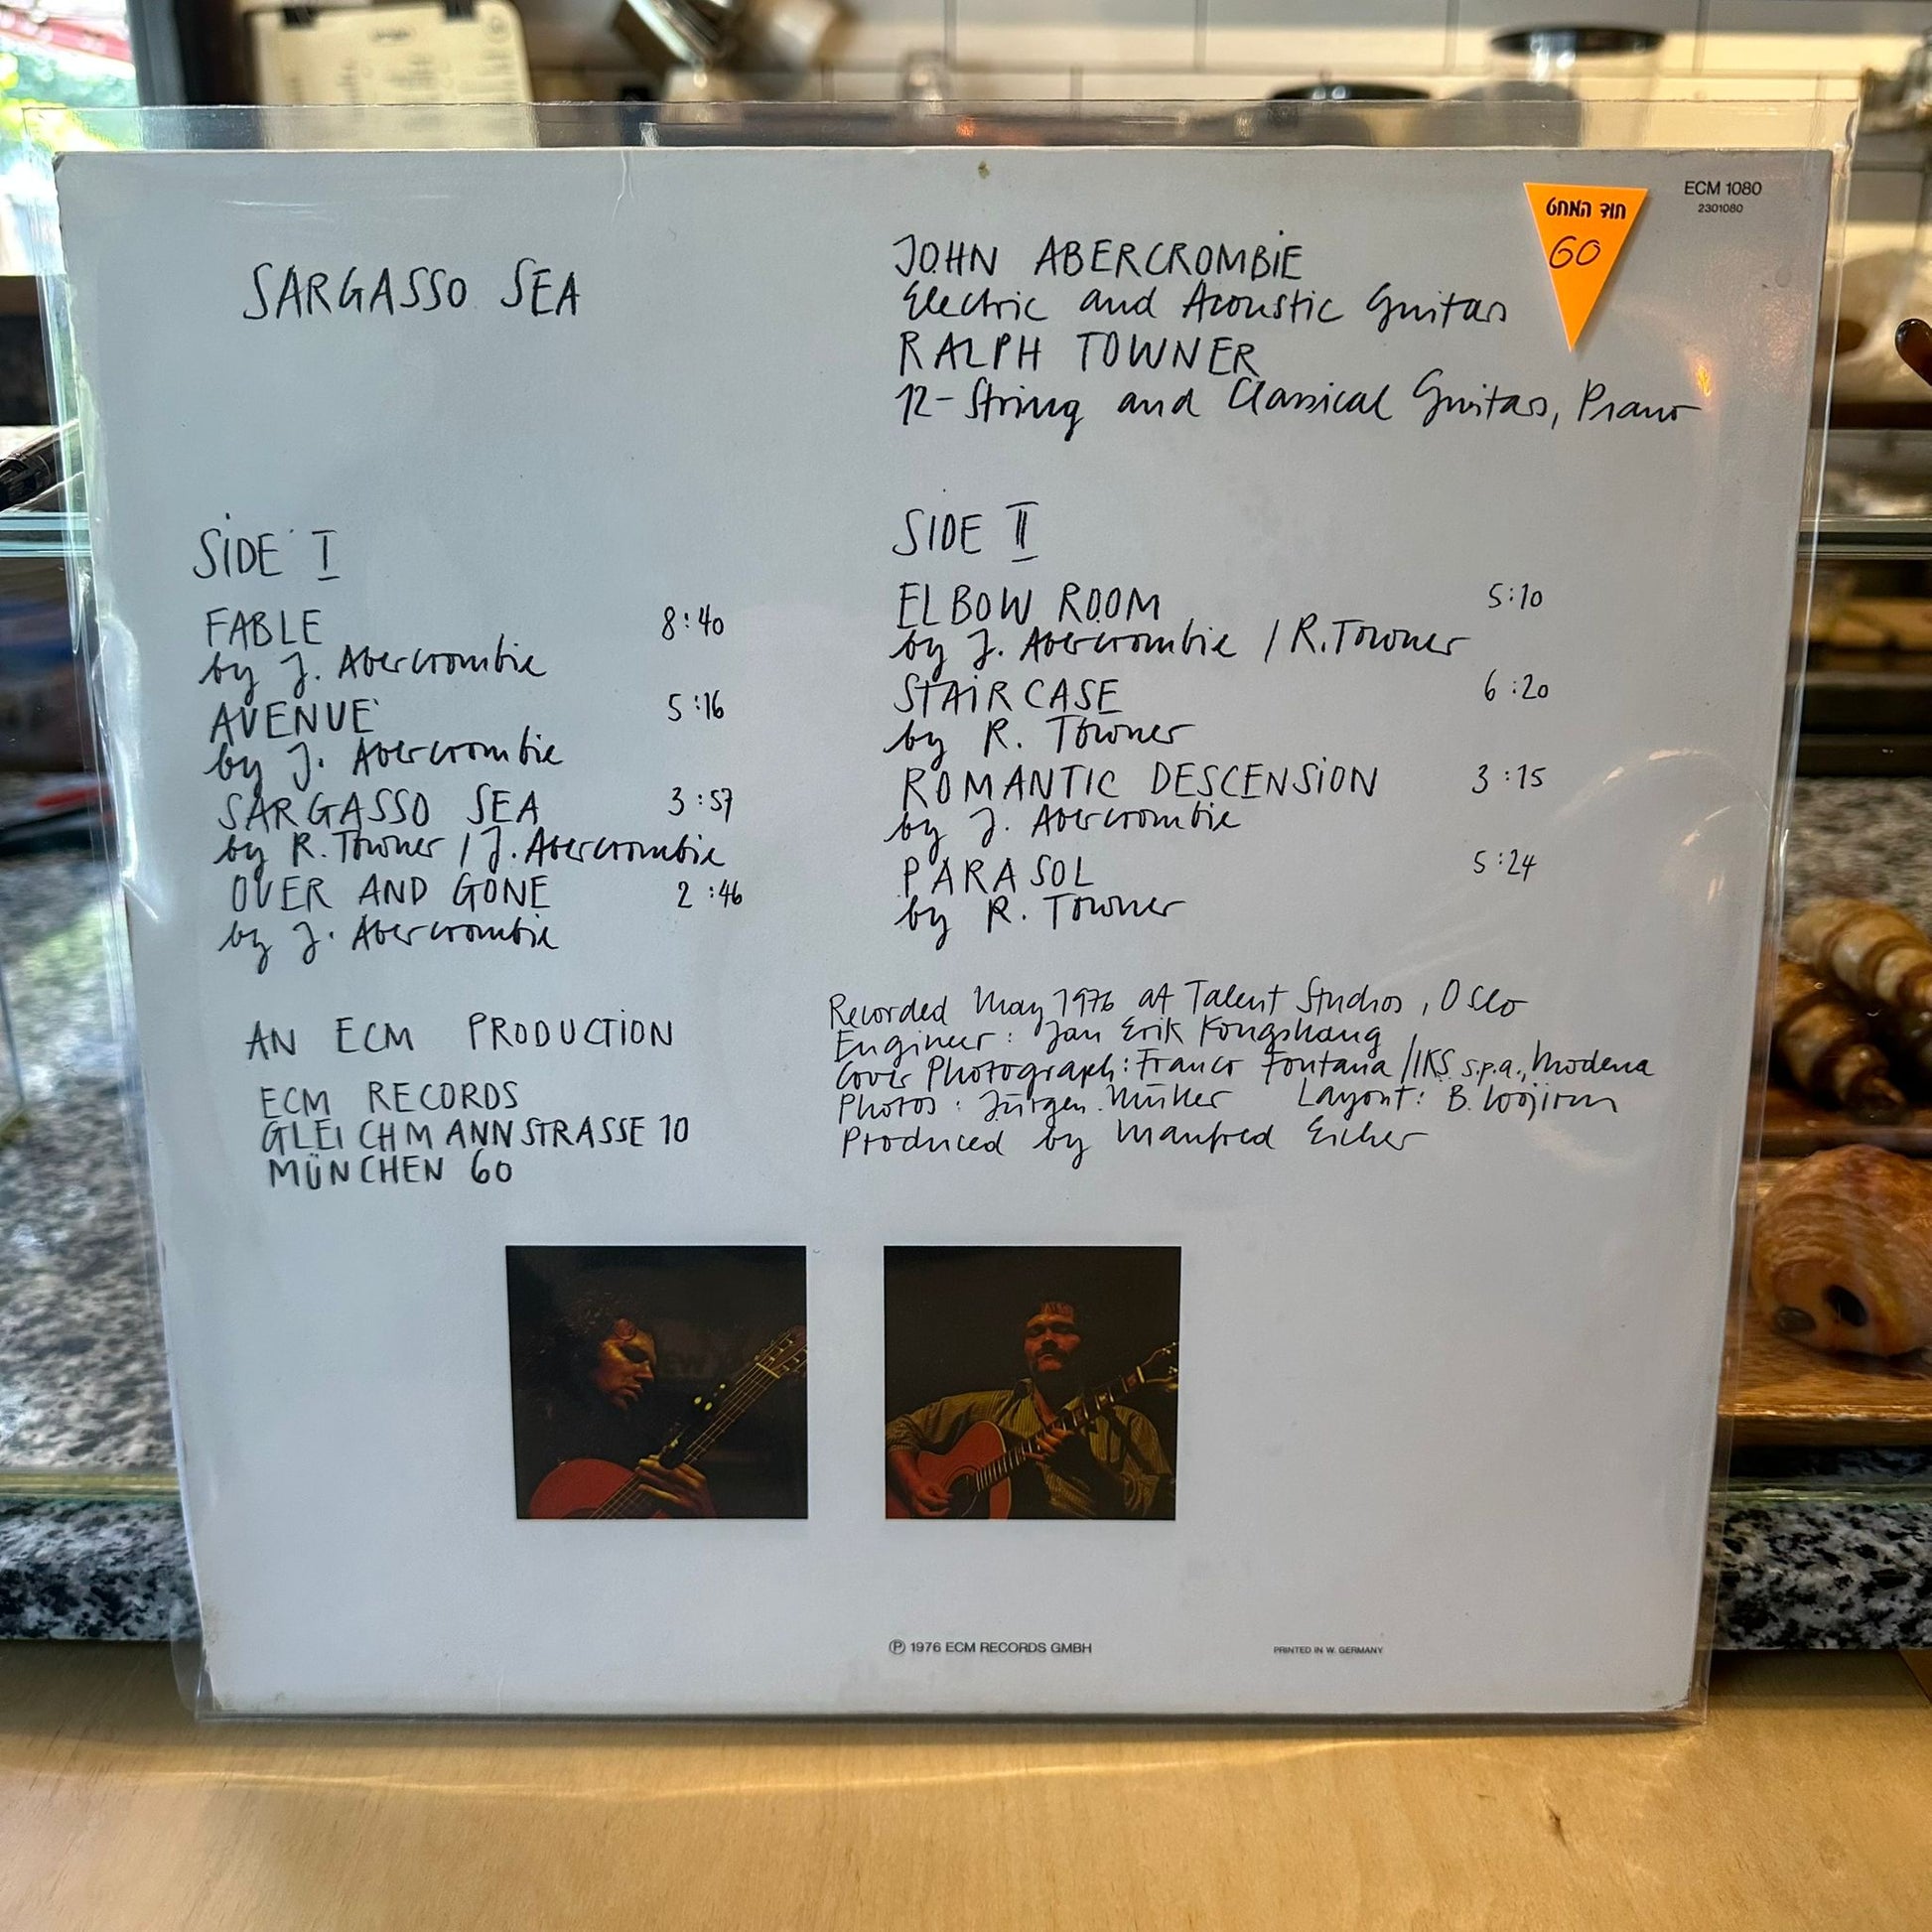 ECM 1080
2301080
חוד המחט
60
SARGASSO SEA
JOHN ABERCROMBIE
Electric and Acoustic Guitars
RALPH TOWNER
12-String and Classical Guitars, Piano
SIDE I
FABLE 8:40
by J. Abercrombie
AVENUE 5:16
by J. Abercrombie
SARGASSO SEA 3:57
by R. Towner / J. Abercrombie
OVER AND GONE 2:46
by J. Abercrombie
SIDE II
ELBOW ROOM 5:10
by J. Abercrombie / R. Towner
STAIRCASE 6:20
by R. Towner
ROMANTIC DESCENSION 3:15
by J. Abercrombie
PARASOL 5:24
by R. Towner
AN ECM PRODUCTION
ECM RECORDS
GLEICHMANNSTRASSE 10
MÜNCHEN 60
Recorded May 1976 at Talent Studios, Oslo
Engineer: Jan Erik Kongshaug
Cover Photograph: Franco Fontana / IKS s.p.a., Modena
Photos: Jürgen Müller Layout: B. Wojirsch
Produced by Manfred Eicher
Ⓟ 1976 ECM RECORDS GMBH
PRINTED IN W. GERMANY